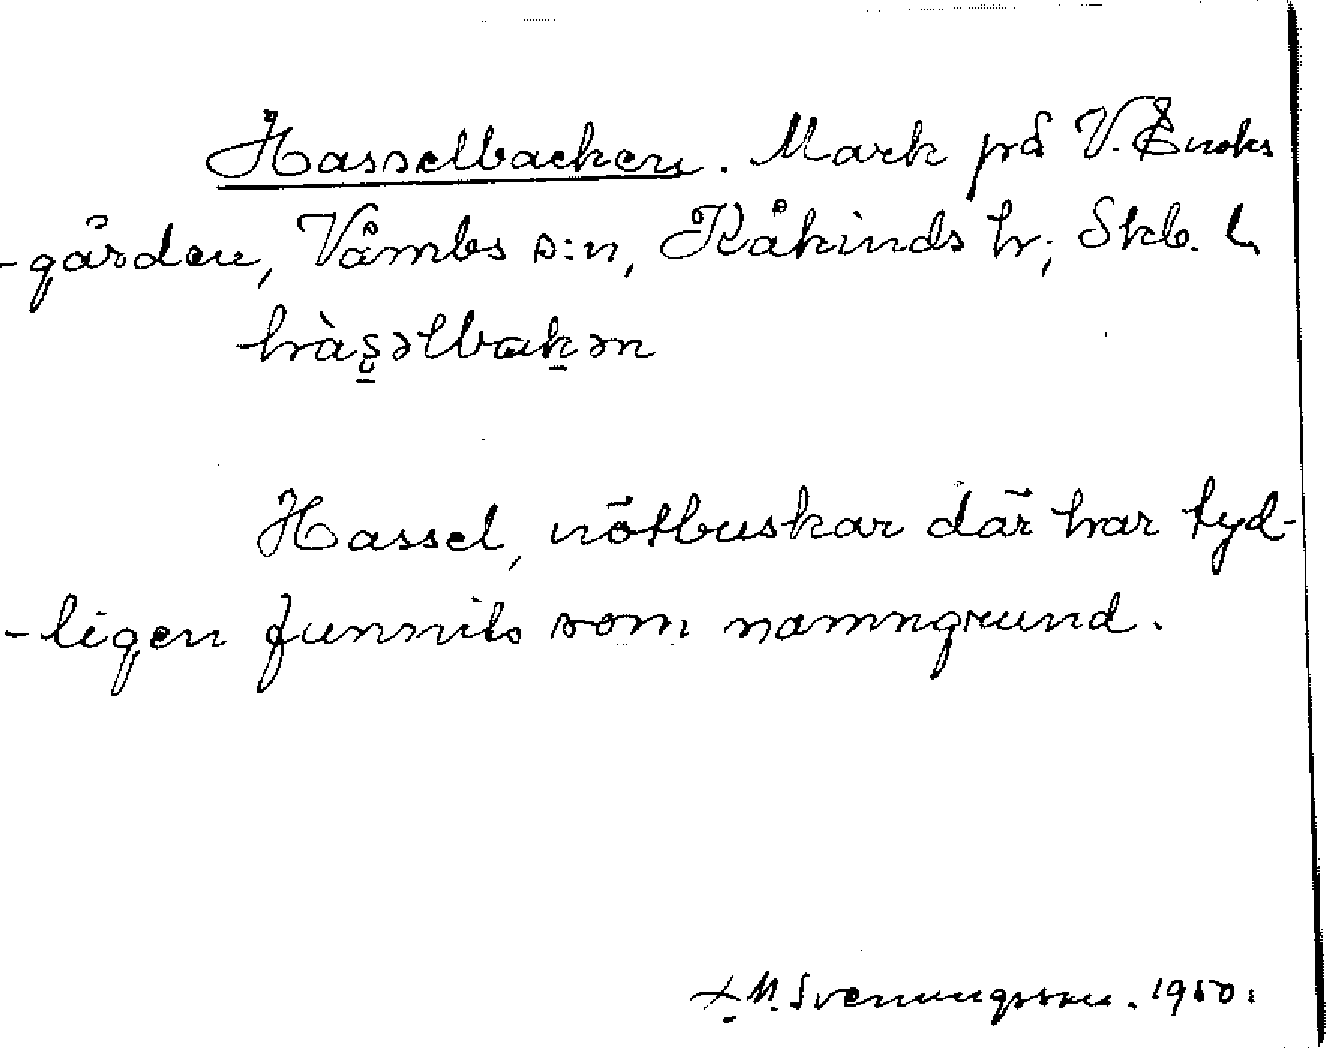 Hasselbacken. Mark på V. Enoks
-gården, Våmbs s:n, Kåkinds hr, Skb. l.
hàs̤əlbak̠ən
Hassel, nötbuskar där har tyd-
-ligen funnits som namngrund.
M. Svenungsson. 1950.